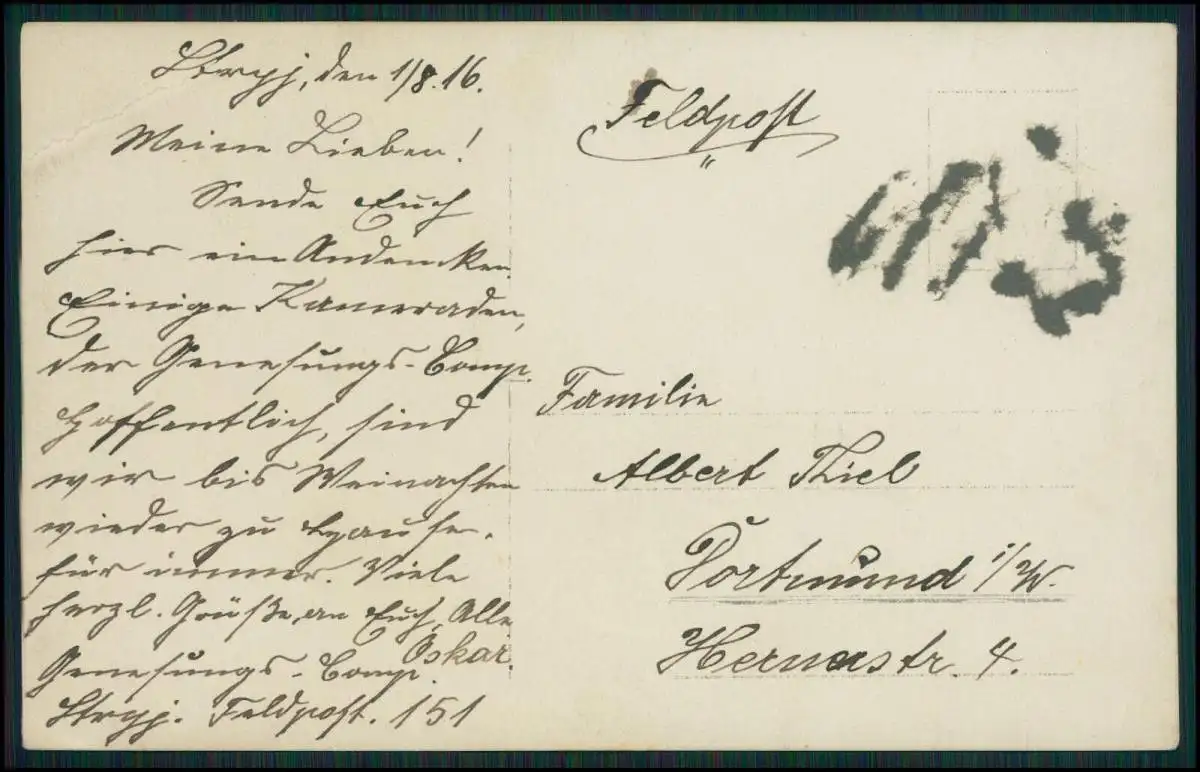 Stryj, den 1/8.16.
Meine Lieben!
Sende Euch
hier ein Andenken.
Einige Kameraden,
der Genesungs-Comp.
Hoffentlich, sind
wir bis Weinachten
wieder zu Hause.
für immer. Viele
herzl. Grüße, an Euch, Alle
Oskar.
Genesungs-Comp.
Stryj. Feldpost. 151
Feldpost
Familie
Albert Thiel
Dortmund i/W.
Hernerstr. 4.